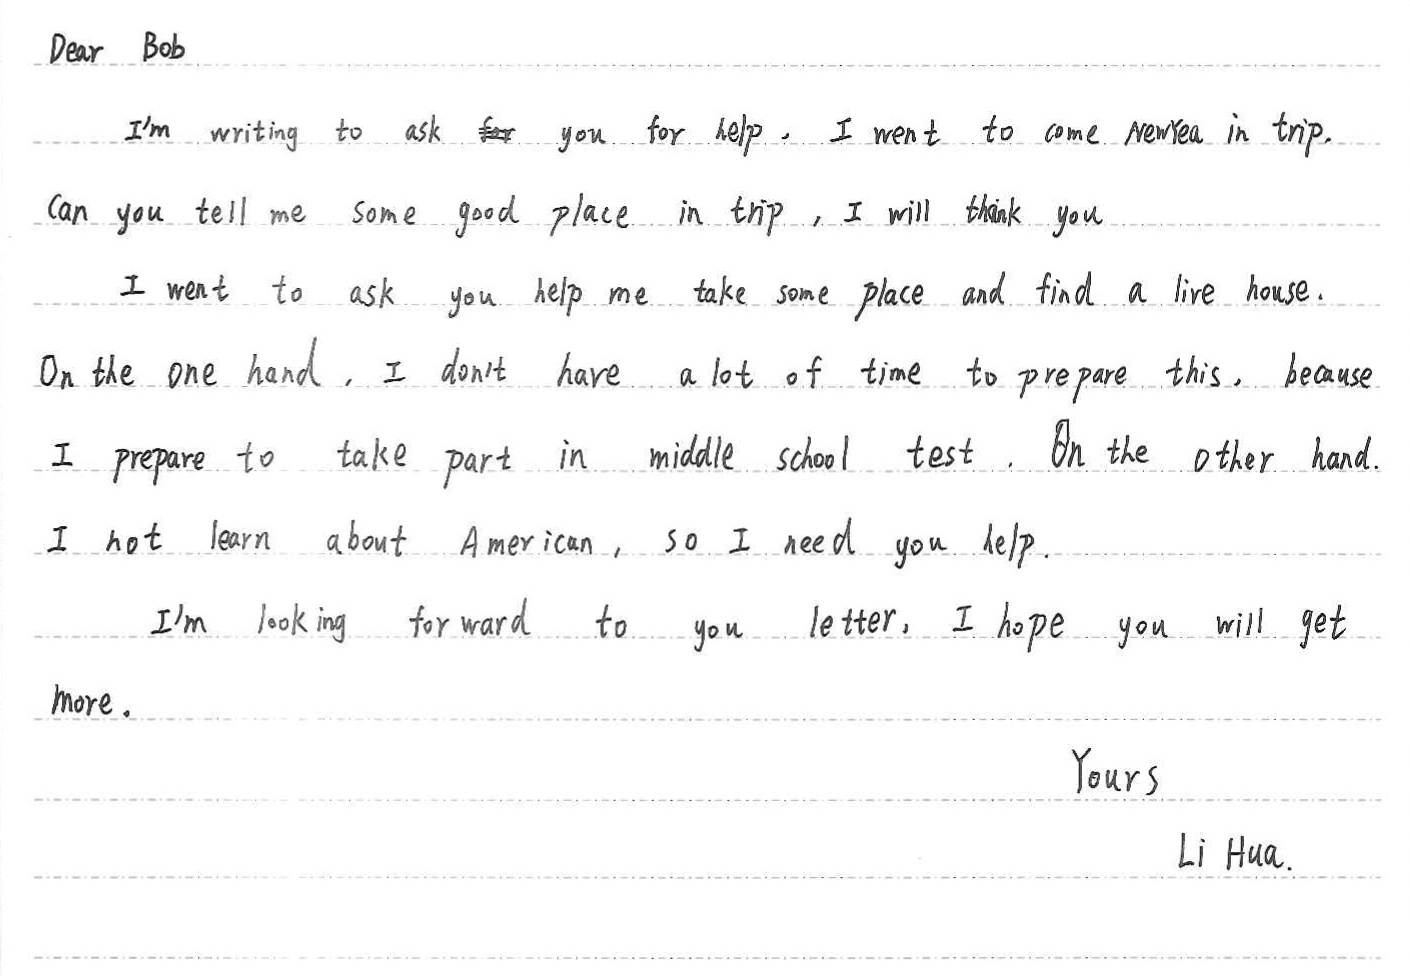 Dear Bob
I'm writing to ask you for help. I went to come NewYea in trip.
Can you tell me some good place in trip, I will thank you
I went to ask you help me take some place and find a live house.
On the one hand, I don't have a lot of time to prepare this, because
I prepare to take part in middle school test. On the other hand.
I not learn about American, so I need you help.
I'm looking forward to you letter, I hope you will get
more.
Yours
Li Hua.